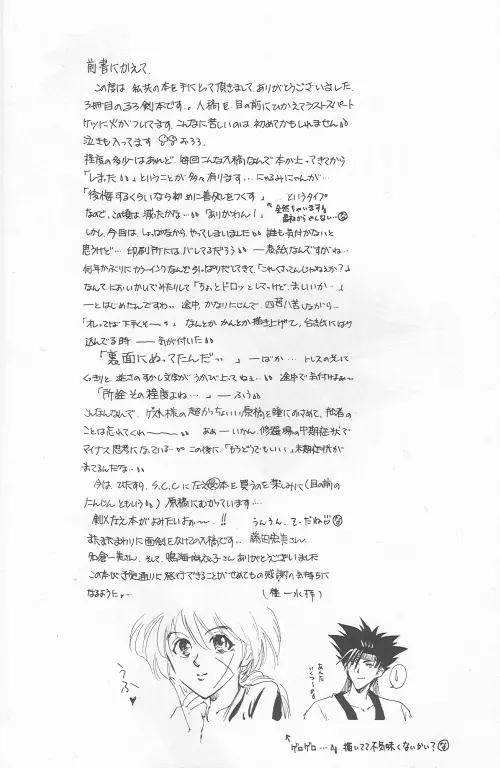 前書にかえて
この度は、私共の本を手にとって頂きまして、ありがとうございました。
3冊目のるろ剣本です。人稿を目の前にひかえてラストスパート
ケツに火がついてます。こんなに苦しいのは、初めてかもしれません
泣きも入ってます おろろ。
程度の多少はあれど、毎回こんな入稿なんで本が上ってきてから
「しまった」ということが多々有ります…
「後悔するくらいなら初めに善処をつくす」、というタイプ
なので、この度は減ったかな…「ありかわん!」
全然ちゃいます
しかし、今回は、しょっぱなから、やってしまいました 誰も気付かないと
思うけど… 印刷所には、バレてるだろう ― 表紙なんですがね…
何年かぶりにカラーインクなんで
なんて、においかいでみたりして「ちょっとドロッとしてっけど、ましいか…」
―とはじめたんですわ。途中、かなりにじんで、四苦八苦しながら…
「オレってば下手くそ〜」なんとか かんとか描き上げて、台紙にはり
込んでる時 ― 気が付いた
「裏面にぬってたんだっ」 ―ばか… トレスの光に
くっきりと、逆さのすかし文字が うかび上ってねェ… 途中で気付けよぉ〜
「所詮その程度よね…」 ―ふぅ
こんなんなんで、ゲスト様の超かっちょいい原稿を瞳におさめて、他者の
ことは忘れてくれ〜 ああーいかん、修羅場の中期症状で
マイナス思考になっている… この後に、「もうどうでもいい」末期症状が
まってるんだな…
今は、ひたすら、S.C.Cに左之本を買うのを楽しみに(目の前の
にんじんともいう)原稿にむかっています…
剣×左之本がよみたいよぉ〜!! うんうん、
またまたまわりに面倒をかけての入稿です… 藤田
さん、そして、鳴海 子さんありがとうございました
この本が、予定通りに発行できることがせめてもの感謝の気持ちに
なるように…
うふ♥
あんた
いくつ
ゲロゲロ… 描いてて不気味くないかい?